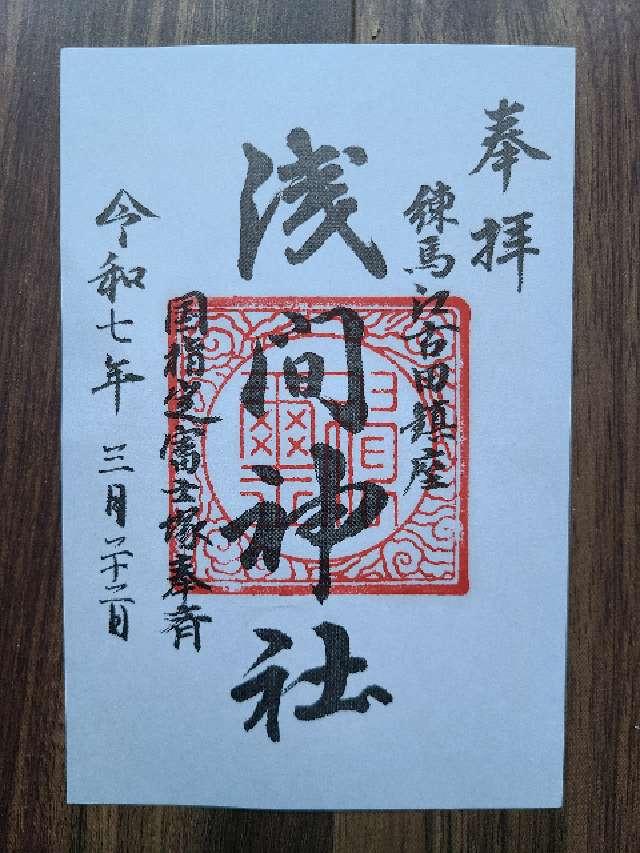 奉拝
練馬江古田鎮座
浅間神社
国指定富士塚奉斉
令和七年 三月二十二日